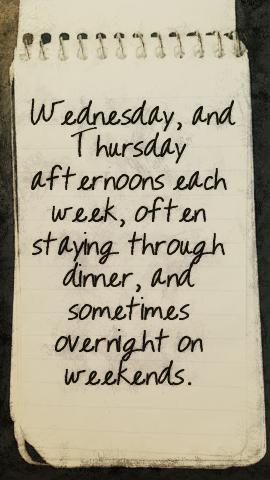 Wednesday, and
Thursday
afternoons each
week, often
staying through
dinner, and
sometimes
overnight on
weekends.